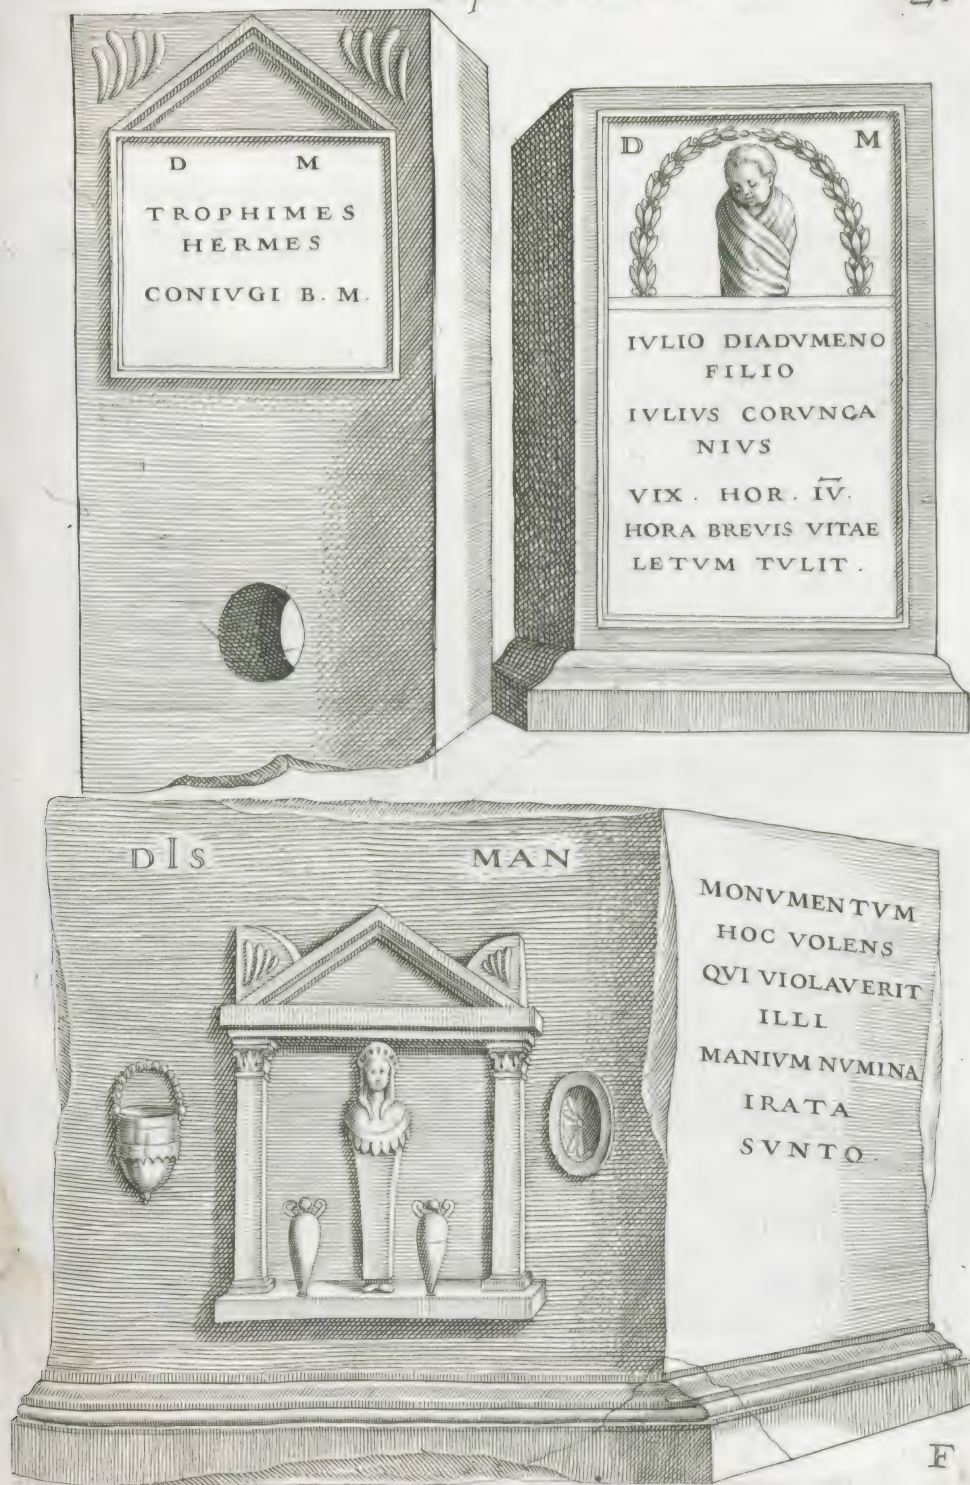 D M
TROPHIMES
HERMES
CONIVGI B. M.
D M
IVLIO DIADVMENO
FILIO
IVLIVS CORVNCA
NIVS
VIX. HOR. IV.
HORA BREVIS VITAE
LETVM TVLIT.
DIS MAN
MONVMENTVM
HOC VOLENS
QVI VIOLAVERIT
ILLI
MANIVM NVMINA
IRATA
SVNTO.
F